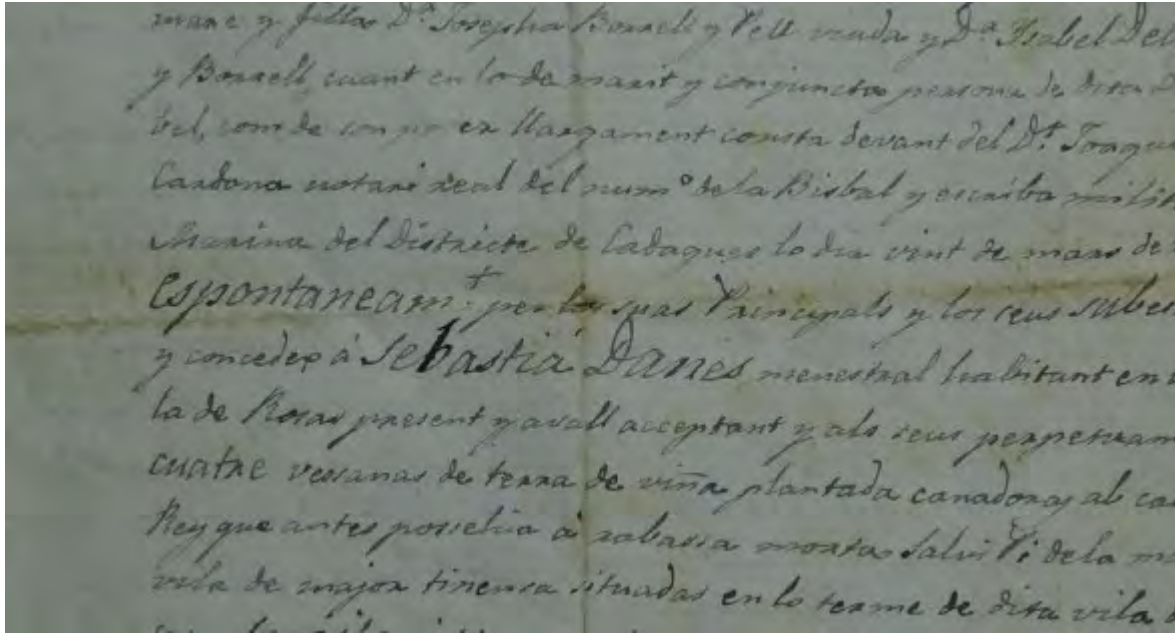 mare y filla D.ª Josepha Borrell y Vell viuda y D.ª Isabel Del
y Borrell, cuant en lo de marit y conjuncta persona de dita
bel, com de son per llargament consta devant del D.t Joaqu
Cardona notari real del num.º de la Bisbal y escriba milit
Marina del Districte de Cadaques lo dia vint de mars de
espontaneam.t per los seus Principals y los seus
y concedex á Sebastiá Danés menestral habitant en
la de Rosas present y avall acceptant y als seus perpetuam
cuatre vessanas de terra de viña plantada al
Rey que antes possehia á rabassa morta Salvi Pi de la m
vila de major tinensa situadas en lo terme de dita vila